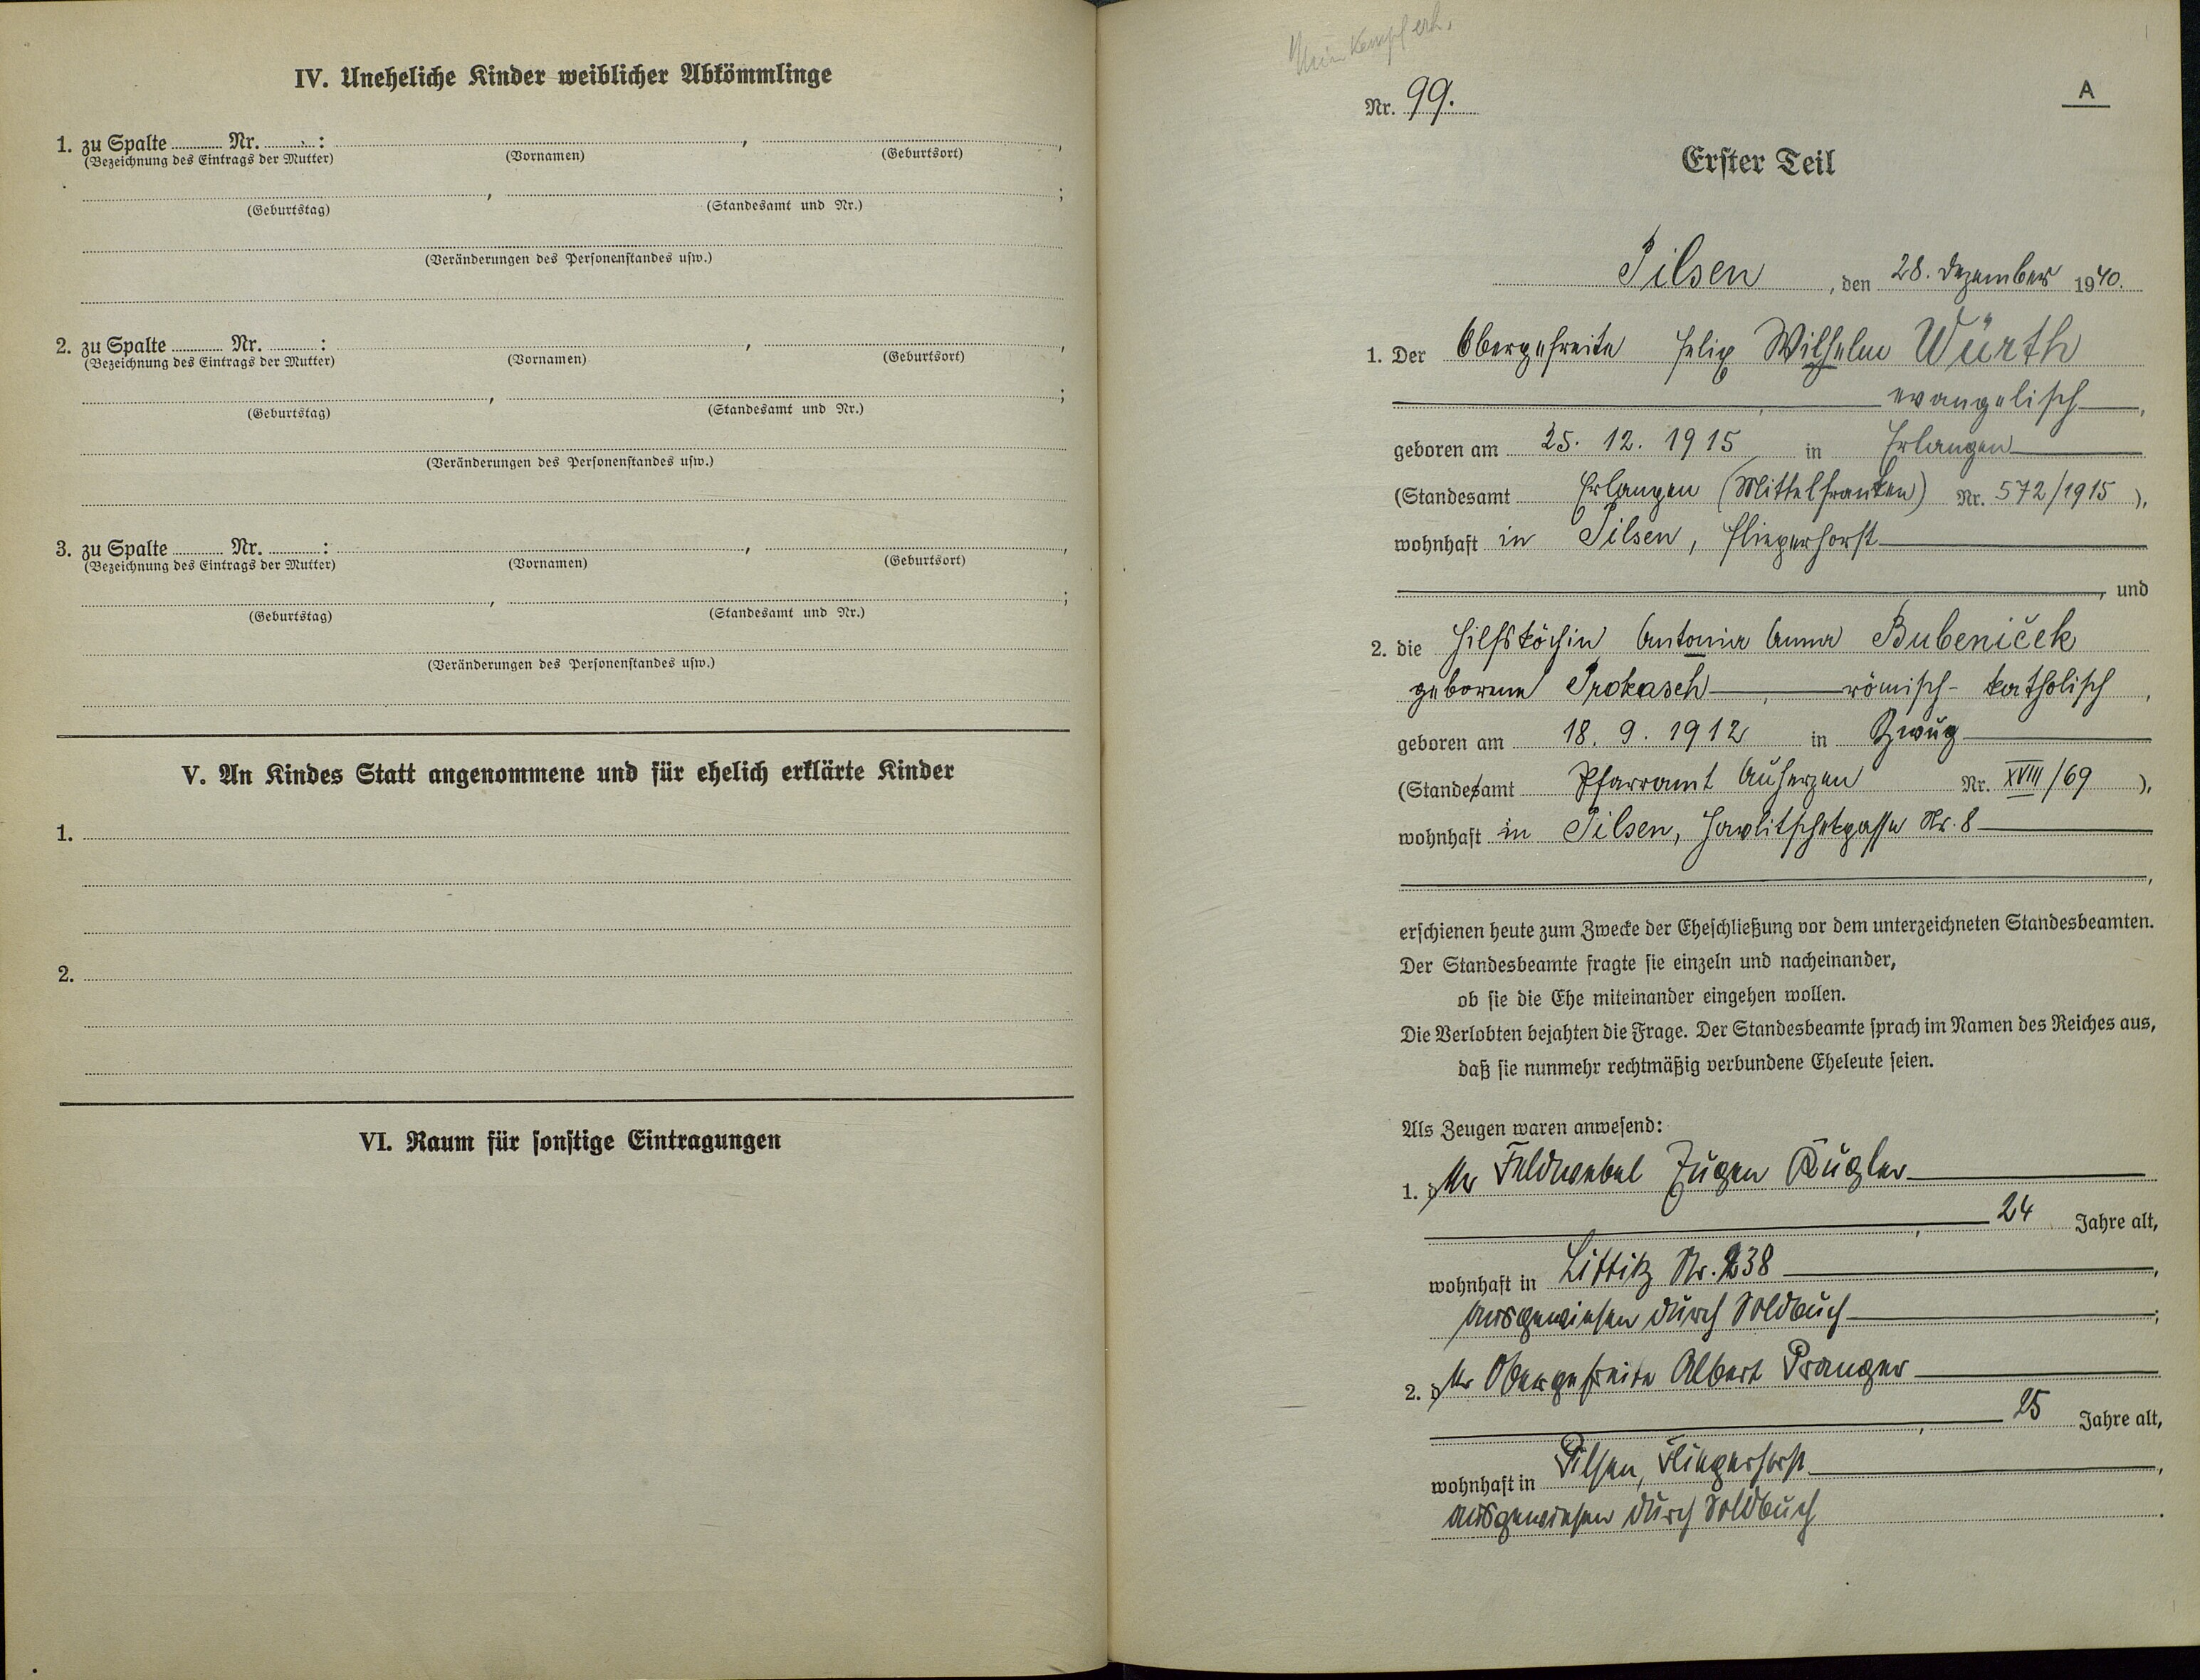 IV. Uneheliche Kinder weiblicher Abkömmlinge
1. zu Spalte Nr. : , ,
(Bezeichnung des Eintrags der Mutter) (Vornamen) (Geburtsort)
, ;
(Geburtstag) (Standesamt und Nr.)
(Veränderungen des Personenstandes usw.)
2. zu Spalte Nr. : , ,
(Bezeichnung des Eintrags der Mutter) (Vornamen) (Geburtsort)
, ;
(Geburtstag) (Standesamt und Nr.)
(Veränderungen des Personenstandes usw.)
3. zu Spalte Nr. : , ,
(Bezeichnung des Eintrags der Mutter) (Vornamen) (Geburtsort)
, ;
(Geburtstag) (Standesamt und Nr.)
(Veränderungen des Personenstandes usw.)
V. An Kindes Statt angenommene und für ehelich erklärte Kinder
1.
2.
VI. Raum für sonstige Eintragungen
Mein Kampf erh.
Nr. 99.
A
Erster Teil
Pilsen, den 28. Dezember 1940.
1. Der Obergefreite Felix Wilhelm Würth
evangelisch,
geboren am 25. 12. 1915 in Erlangen
(Standesamt Erlangen (Mittelfranken) Nr. 572/1915),
wohnhaft in Pilsen, Fliegerhorst
, und
2. die Hilfsköchin Antonia Anna Bubeniček
geborene Prokasch, römisch-katholisch,
geboren am 18. 9. 1912 in Zwug
(Standesamt Pfarramt Auherzen Nr. XVIII/69),
wohnhaft in Pilsen, Hawlitschekgasse Nr. 8
,
erschienen heute zum Zwecke der Eheschließung vor dem unterzeichneten Standesbeamten.
Der Standesbeamte fragte sie einzeln und nacheinander,
ob sie die Ehe miteinander eingehen wollen.
Die Verlobten bejahten die Frage. Der Standesbeamte sprach im Namen des Reiches aus,
daß sie nunmehr rechtmäßig verbundene Eheleute seien.
Als Zeugen waren anwesend:
1. der Feldwebel Eugen Kugler
, 24 Jahre alt,
wohnhaft in Littitz Nr. 238,
ausgewiesen durch Soldbuch;
2. der Obergefreite Albert Pranger
, 25 Jahre alt,
wohnhaft in Pilsen, Fliegerhorst,
ausgewiesen durch Soldbuch.